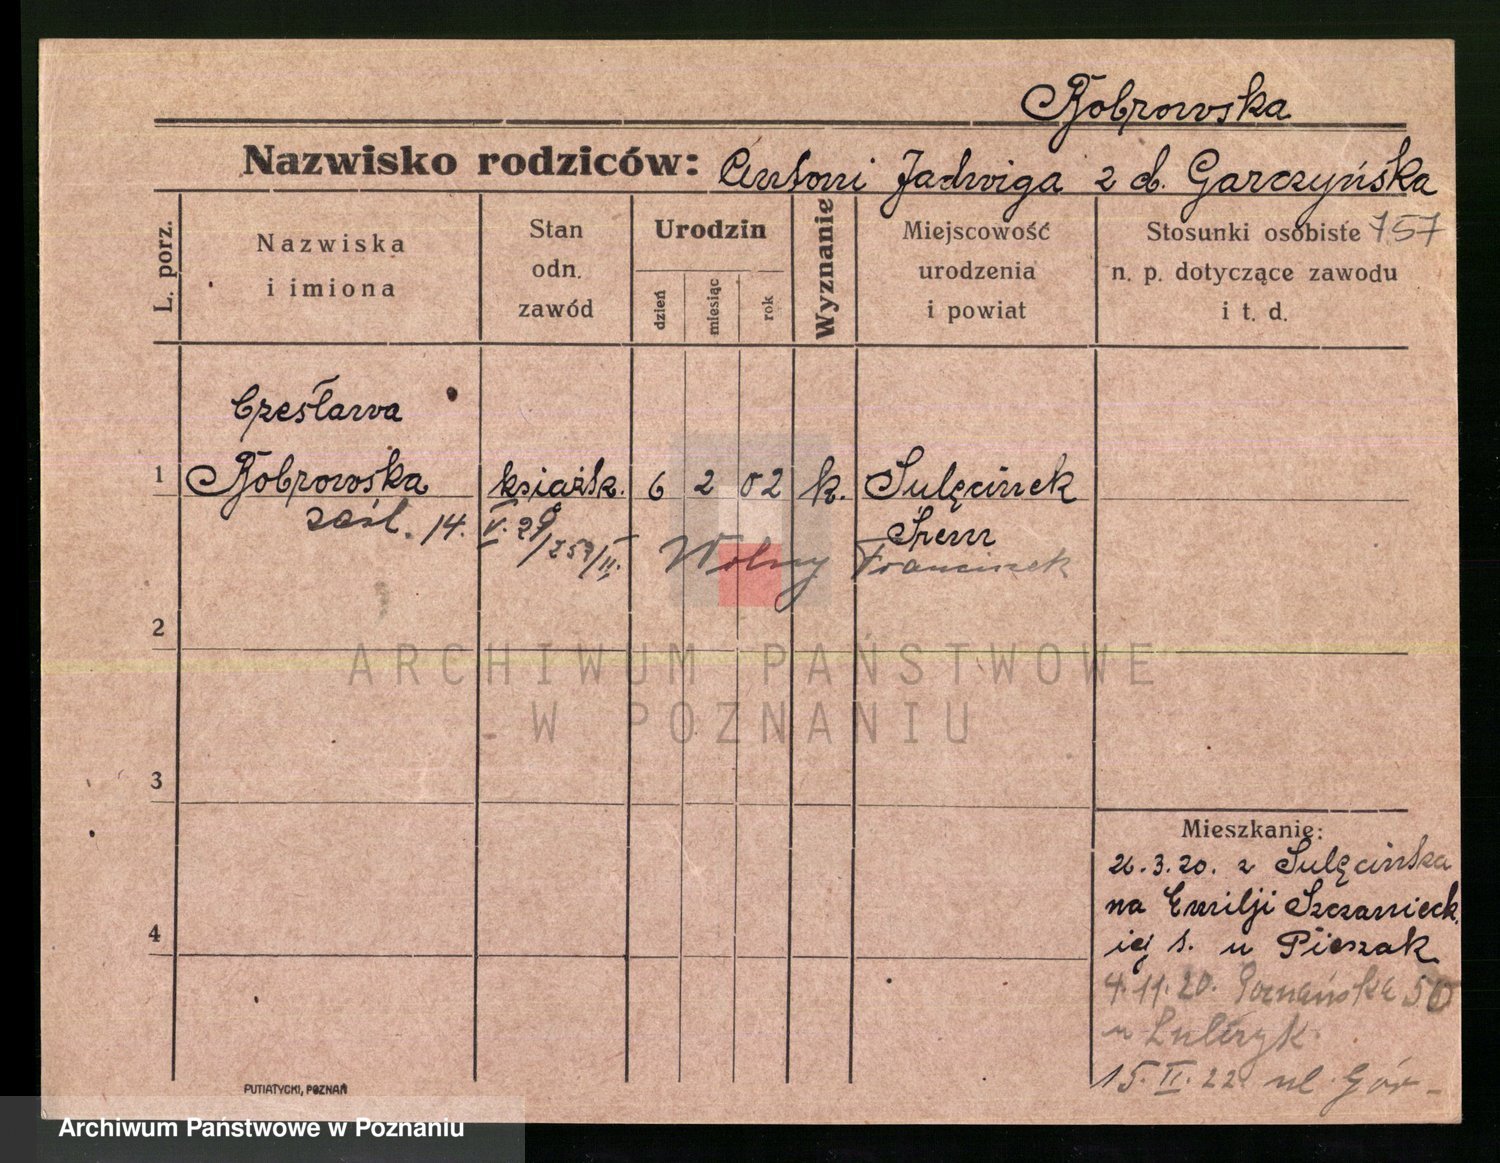 Bobrowska
Nazwisko rodziców: Antoni Jadwiga z d. Garczyńska
L. porz.
Nazwiska
i imiona
Stan
odn.
zawód
Urodzin
dzień
miesiąc
rok
Wyznanie
Miejscowość
urodzenia
i powiat
Stosunki osobiste 157
n. p. dotyczące zawodu
i t. d.
Czesława
1 Bobrowska książk. 6 2 02 k. Sulęcinek
zaśl. 14. V. 29 /257/II. Śrem
Wolny Franciszek
2
3
4
Mieszkanie:
26.3.20. z Sulęcinka
na Emilji Szczanieck
iej s. u Pieszak
4.11.20. Poznańska 50
u
15.II.22. ul. Gór-
PUTIATYCKI, POZNAŃ
ARCHIWUM PAŃSTWOWE
W POZNANIU
Archiwum Państwowe w Poznaniu